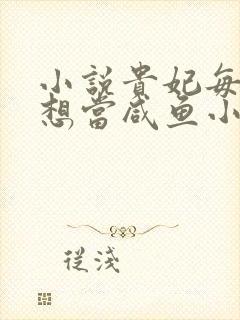 小説貴妃每
想當咸鱼小
從淺